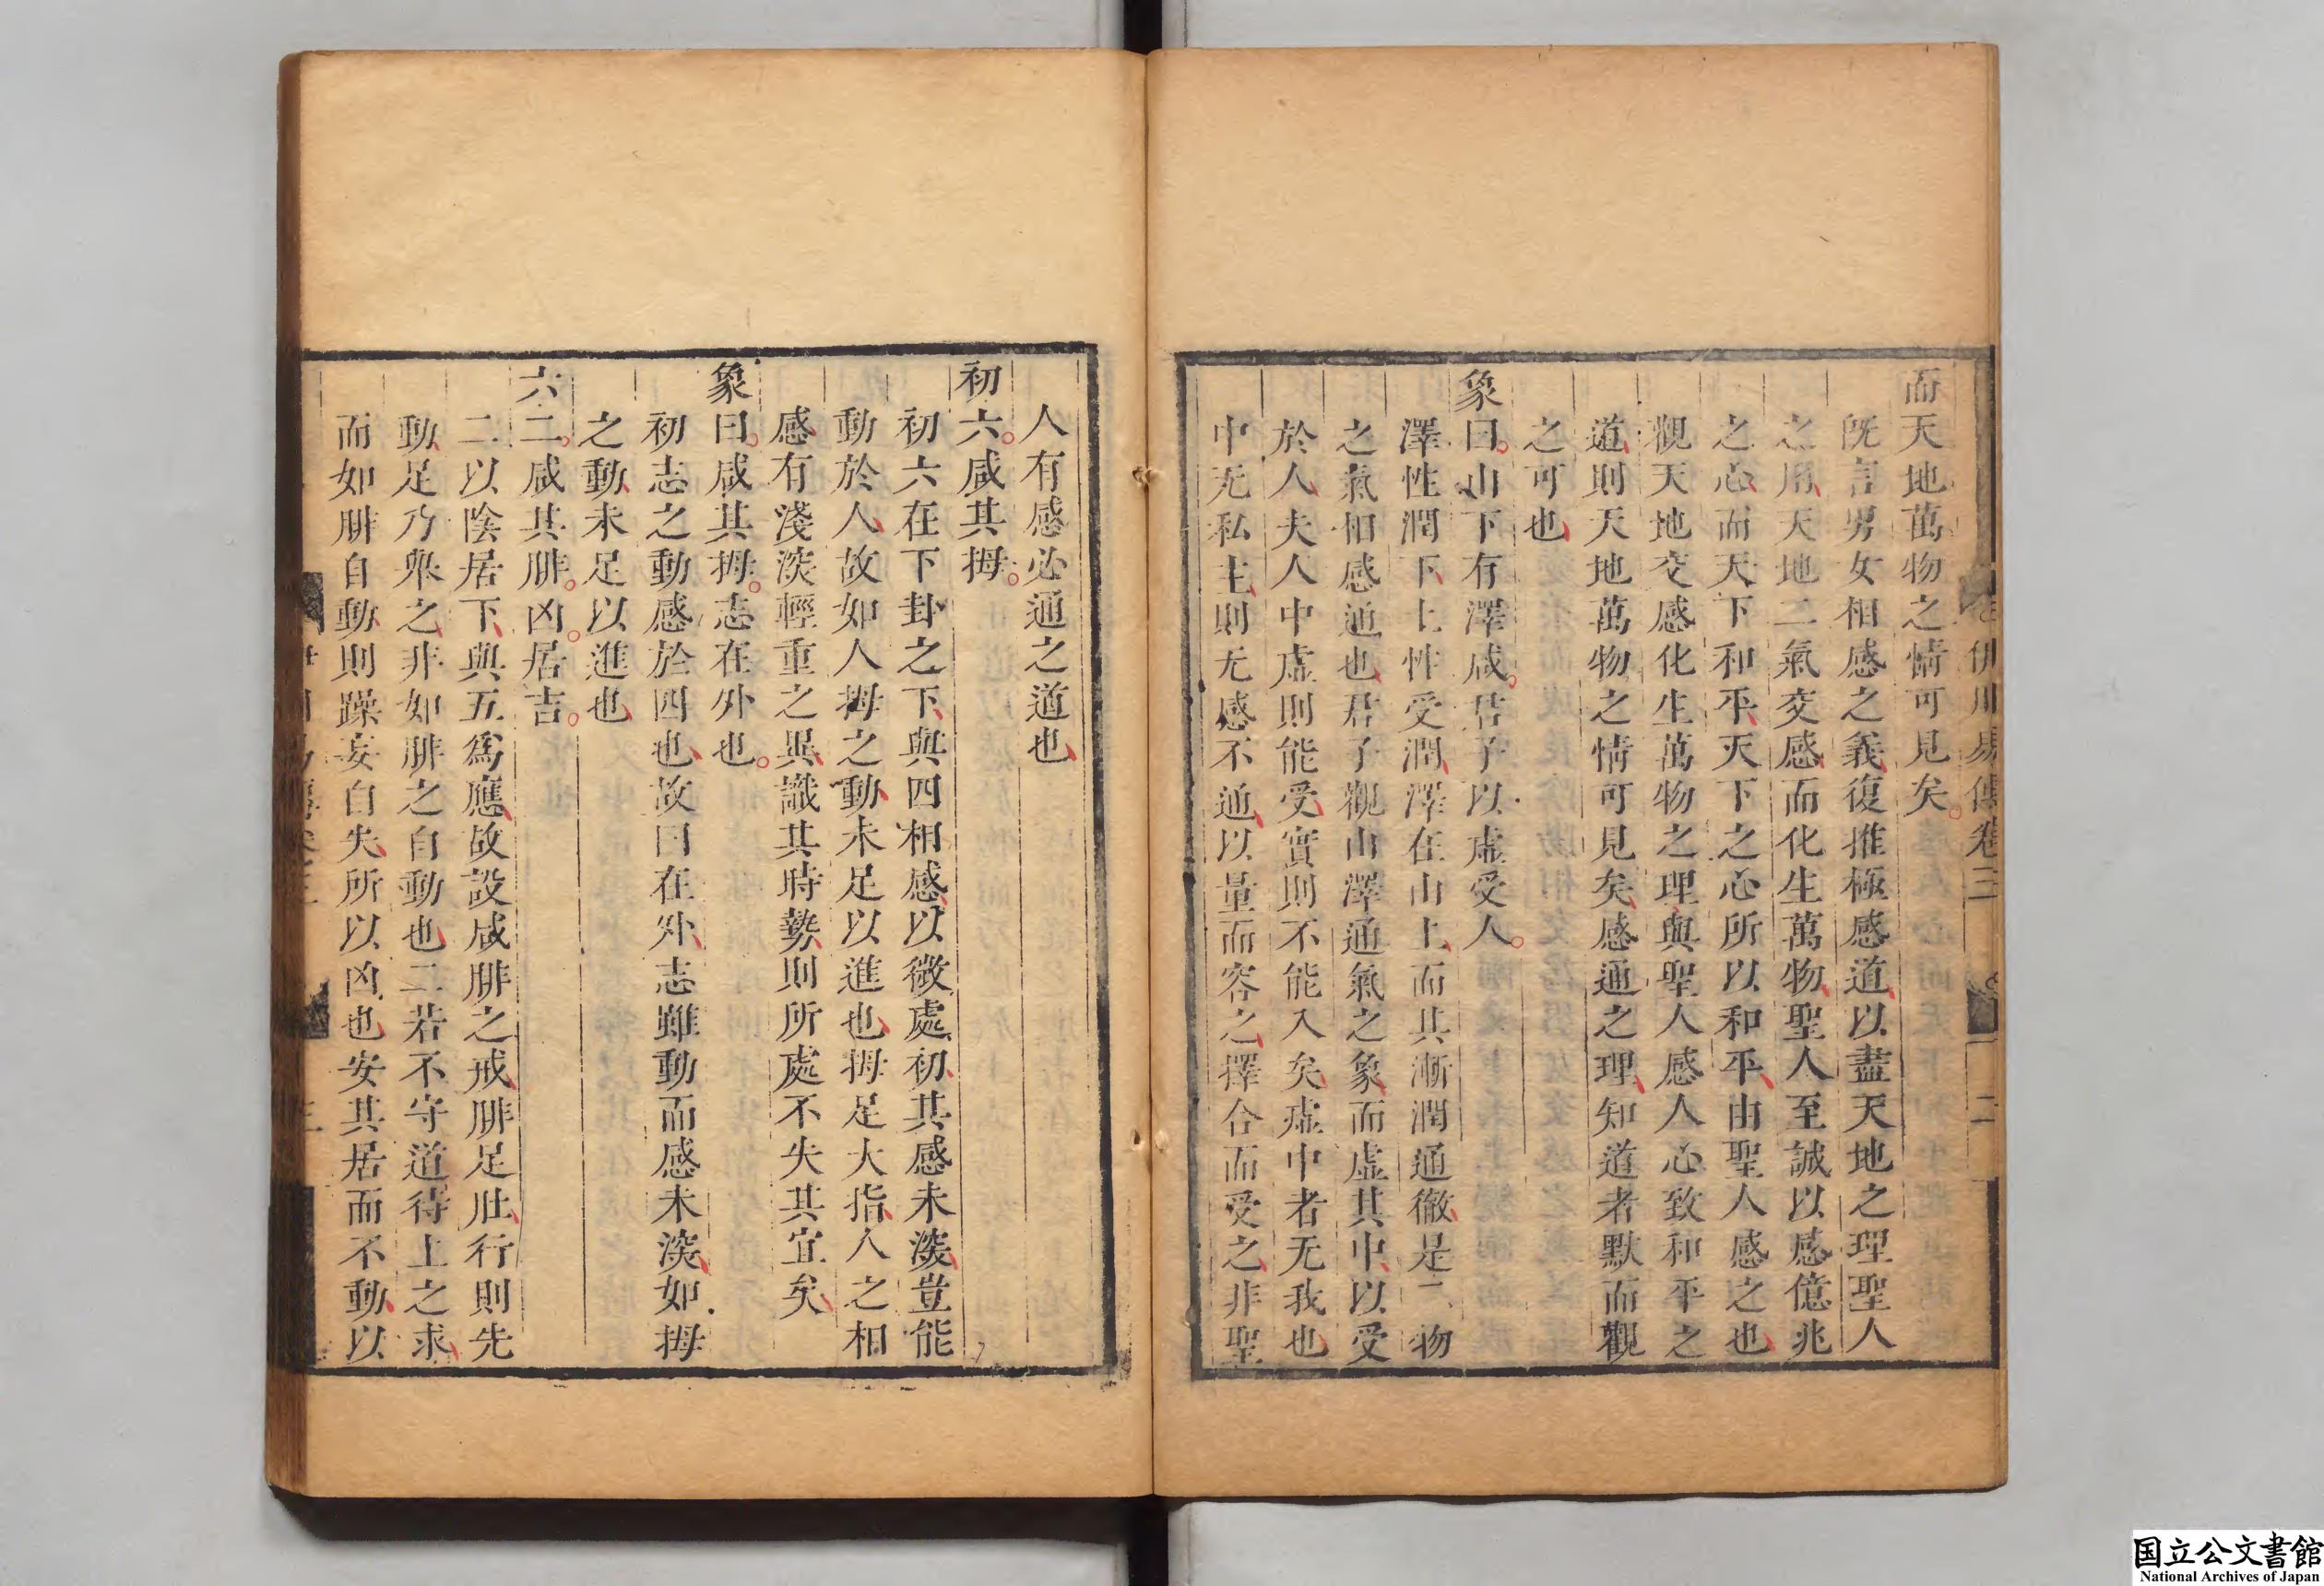 伊川易傳卷三
二
而天地萬物之情可見矣。
旣言男女相感之義復推極感道以盡天地之理聖人
之用天地二氣交感而化生萬物聖人至誠以感億兆
之心而天下和平天下之心所以和平由聖人感之也
觀天地交感化生萬物之理與聖人感人心致和平之
道則天地萬物之情可見矣感通之理知道者默而觀
之可也
象曰。山下有澤咸。君子以虛受人。
澤性潤下土性受潤澤在山上而其漸潤通徹是二物
之氣相感通也君子觀山澤通氣之象而虛其中以受
於人夫人中虛則能受實則不能入矣虛中者无我也
中无私主則无感不通以量而容之擇合而受之非聖
人有感必通之道也
初六。咸其拇。
初六在下卦之下與四相感以微處初其感未深豈能
動於人故如人拇之動未足以進也拇足大指人之相
感有淺深輕重之異識其時勢則所處不失其宜矣
象曰。咸其拇。志在外也。
初志之動感於四也故曰在外志雖動而感未深如拇
之動未足以進也
六二。咸其腓。凶。居吉。
二以陰居下與五爲應故設咸腓之戒腓足肚行則先
動足乃舉之非如腓之自動也二若不守道待上之求
而如腓自動則躁妄自失所以凶也安其居而不動以
三
国立公文書館
National Archives of Japan